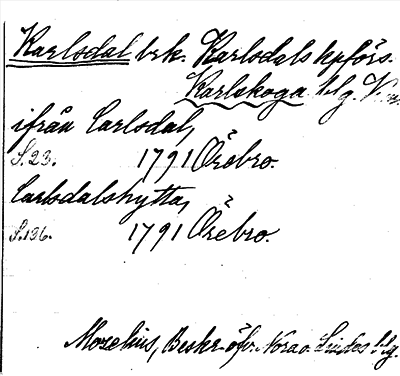 Karlsdal brk. Karlsdals kpförs.
Karlskoga hlg. V
ifrån Carlsdal,
S. 23. 1791 Örebro.
Carlsdalshytta,
S. 136. 1791 Örebro.
Morelius, Beskr. öfv. Nora o. Lindes hlg.